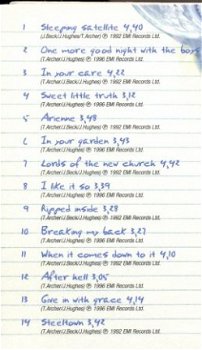 1 Sleeping satellite 4,40
(J.Beck/J.Hughes/T.Archer) ℗ 1992 EMI Records Ltd.
2 One more good night with the boys
(T.Archer/J.Hughes) ℗ 1996 EMI Records Ltd.
3 In your care 4,22
(T.Archer/J.Beck/J.Hughes) ℗ 1992 EMI Records Ltd.
4 Sweet little truth 3,12
(T.Archer/J.Hughes) ℗ 1996 EMI Records Ltd.
5 Arienne 3,48
(T.Archer/J.Beck/J.Hughes) ℗ 1992 EMI Records Ltd.
6 In your garden 3,43
(T.Archer/J.Hughes) ℗ 1996 EMI Records Ltd.
7 Lords of the new church 4,42
(T.Archer/J.Beck/J.Hughes) ℗ 1992 EMI Records Ltd.
8 I like it so 3,39
(T.Archer/J.Hughes) ℗ 1996 EMI Records Ltd.
9 Ripped inside 3,28
(T.Archer/J.Beck/J.Hughes) ℗ 1992 EMI Records Ltd.
10 Breaking my back 3,27
(T.Archer/J.Hughes) ℗ 1996 EMI Records Ltd.
11 When it comes down to it 4,10
(T.Archer/J.Beck/J.Hughes) ℗ 1992 EMI Records Ltd.
12 After hell 3,05
(T.Archer/J.Hughes) ℗ 1996 EMI Records Ltd.
13 Give in with grace 4,14
(T.Archer/J.Hughes) ℗ 1996 EMI Records Ltd.
14 Steeltown 3,42
(T.Archer/J.Beck/J.Hughes) ℗ 1992 EMI Records Ltd.